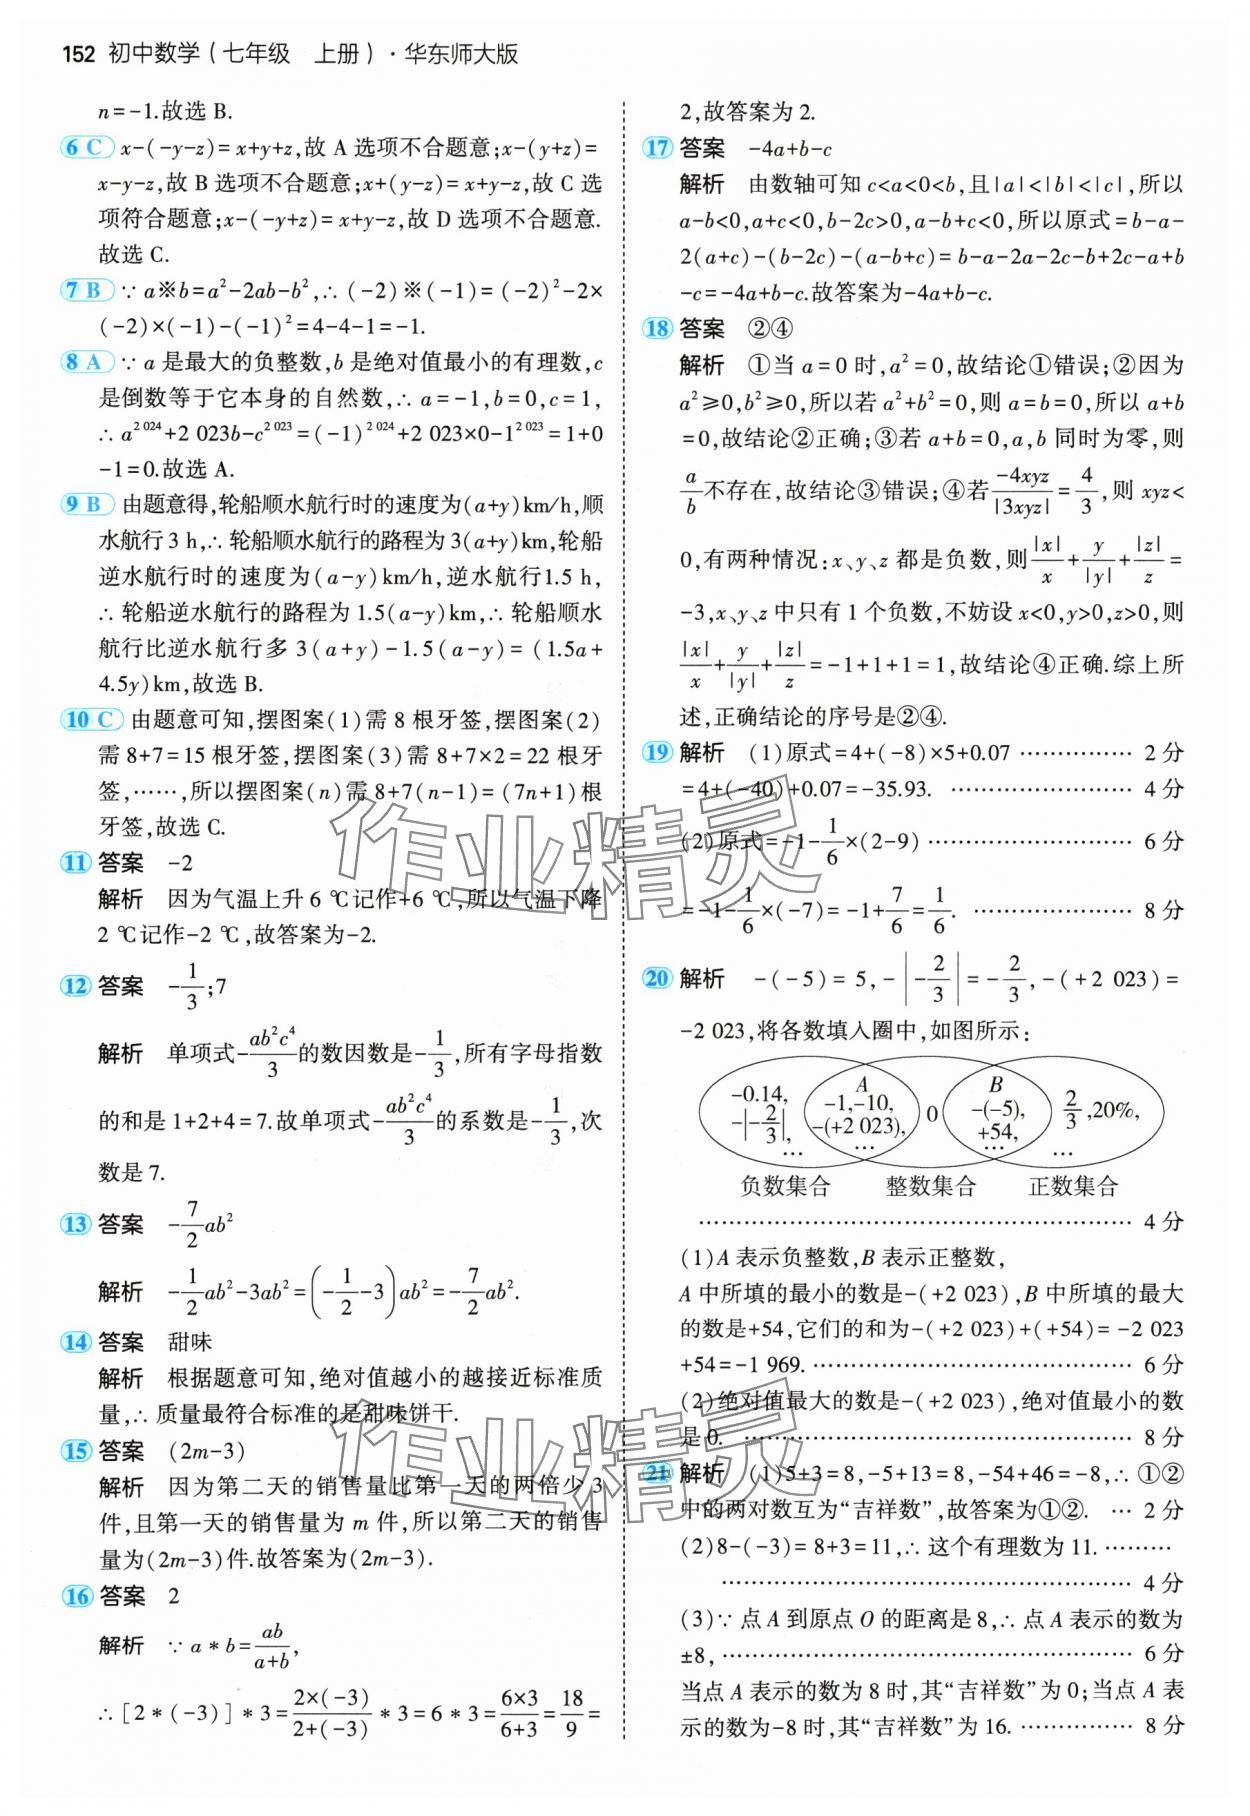 152 初中数学(七年级 上册)·华东师大版
n=-1.故选 B.
6 C x-(-y-z)=x+y+z,故 A 选项不合题意;x-(y+z)=
x-y-z,故 B 选项不合题意;x+(y-z)=x+y-z,故 C 选
项符合题意;x-(-y+z)=x+y-z,故 D 选项不合题意.
故选 C.
7 B ∵a※b=a²-2ab-b²,∴(-2)※(-1)=(-2)²-2×
(-2)×(-1)-(-1)²=4-4-1=-1.
8 A ∵a 是最大的负整数,b 是绝对值最小的有理数,c
是倒数等于它本身的自然数,∴a=-1,b=0,c=1,
∴a^{2 024}+2 023b-c^{2 023}=(-1)^{2 024}+2 023×0-1^{2 023}=1+0
-1=0.故选 A.
9 B 由题意得,轮船顺水航行时的速度为(a+y)km/h,顺
水航行3 h,∴轮船顺水航行的路程为3(a+y)km,轮船
逆水航行时的速度为(a-y)km/h,逆水航行1.5 h,
∴轮船逆水航行的路程为1.5(a-y)km,∴轮船顺水
航行比逆水航行多 3(a+y)-1.5(a-y)=(1.5a+
4.5y)km,故选 B.
10 C 由题意可知,摆图案(1)需 8 根牙签,摆图案(2)
需8+7=15根牙签,摆图案(3)需8+7×2=22根牙
签,……,所以摆图案(n)需8+7(n-1)=(7n+1)根
牙签,故选C.
11 答案 -2
解析 因为气温上升6 ℃记作+6 ℃,所以气温下降
2 ℃记作-2 ℃,故答案为-2.
12 答案 -1/3;7
解析 单项式-ab²c⁴/3的数因数是-1/3,所有字母指数
的和是1+2+4=7.故单项式-ab²c⁴/3的系数是-1/3,次
数是 7.
13 答案 -7/2ab²
解析 -1/2ab²-3ab²=(-1/2-3)ab²=-7/2ab².
14 答案 甜味
解析 根据题意可知,绝对值越小的越接近标准质
量,∴质量最符合标准的是甜味饼干.
15 答案 (2m-3)
解析 因为第二天的销售量比第一天的两倍少3
件,且第一天的销售量为 m 件,所以第二天的销售
量为(2m-3)件.故答案为(2m-3).
16 答案 2
解析 ∵a*b=ab/(a+b),
∴[2*(-3)]*3=2×(-3)/2+(-3)*3=6*3=6×3/6+3=18/9=
2,故答案为 2.
17 答案 -4a+b-c
解析 由数轴可知 c<a<0<b,且|a|<|b|<|c|,所以
a-b<0,a+c<0,b-2c>0,a-b+c<0,所以原式=b-a-
2(a+c)-(b-2c)-(a-b+c)=b-a-2a-2c-b+2c-a+b
-c=-4a+b-c.故答案为-4a+b-c.
18 答案 ②④
解析 ①当 a=0 时,a²=0,故结论①错误;②因为
a²≥0,b²≥0,所以若 a²+b²=0,则 a=b=0,所以 a+b
=0,故结论②正确;③若 a+b=0,a,b 同时为零,则
a/b不存在,故结论③错误;④若-4xyz/|3xyz|=4/3,则 xyz<
0,有两种情况:x、y、z 都是负数,则|x|/x+y/|y|+|z|/z=
-3,x、y、z 中只有 1 个负数,不妨设 x<0,y>0,z>0,则
|x|/x+y/|y|+|z|/z=-1+1+1=1,故结论④正确.综上所
述,正确结论的序号是②④.
19 解析 (1)原式=4+(-8)×5+0.07 …………… 2 分
=4+(-40)+0.07=-35.93. …………………… 4 分
(2)原式=-1-1/6×(2-9) ………………………… 6 分
=-1-1/6×(-7)=-1+7/6=1/6. ………………… 8 分
20 解析 -(-5)=5,-|-2/3|=-2/3,-(+2 023)=
-2 023,将各数填入圈中,如图所示:
A B
-0.14, -1,-10, 0 -(-5), 2/3,20%,
-|-2/3|, -(+2 023), +54,
… … … …
负数集合 整数集合 正数集合
………………………………………………… 4 分
(1)A 表示负整数,B 表示正整数,
A 中所填的最小的数是-(+2 023),B 中所填的最大
的数是+54,它们的和为-(+2 023)+(+54)=-2 023
+54=-1 969. …………………………………… 6 分
(2)绝对值最大的数是-(+2 023),绝对值最小的数
是 0. …………………………………………… 8 分
21 解析 (1)5+3=8,-5+13=8,-54+46=-8,∴①②
中的两对数互为“吉祥数”,故答案为①②. … 2 分
(2)8-(-3)=8+3=11,∴这个有理数为 11. ………
……………………………………………… 4 分
(3)∵点 A 到原点 O 的距离是 8,∴点 A 表示的数为
±8, ……………………………………………… 6 分
当点 A 表示的数为 8 时,其“吉祥数”为 0;当点 A 表
示的数为-8 时,其“吉祥数”为 16. …………… 8 分
作业精灵
作业精灵